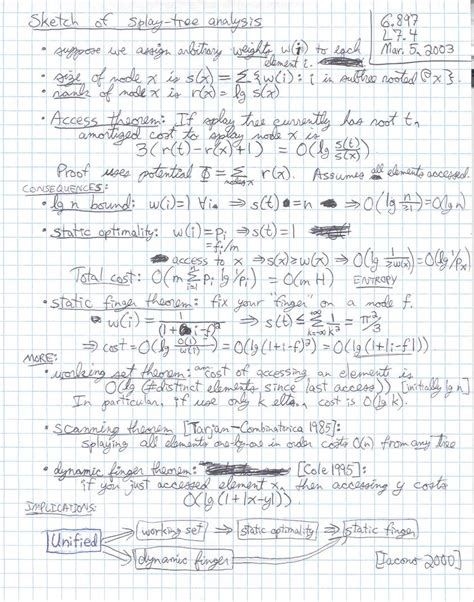 Sketch of splay-tree analysis
6.897
L7.4
Mar. 5, 2003
• suppose we assign arbitrary weights w(i) to each
element i.
• size of node x is s(x) = Σ {w(i) : i in subtree rooted @ x}.
• rank of node x is r(x) = lg s(x)
• Access theorem: If splay tree currently has root t,
amortized cost to splay node x is
3(r(t) - r(x) + 1) = O(lg s(t)/s(x))
Proof uses potential Φ = Σ node x r(x). Assumes all elements accessed.
CONSEQUENCES:
• lg n bound: w(i)=1 ∀i ⇒ s(t) = n ⇒ O(lg n/1) = O(lg n)
• static optimality: w(i) = pi ⇒ s(t) = 1
= fi/m
access to x ⇒ s(x) ≥ w(x) ⇒ O(lg 1/w(x)) = O(lg 1/px)
Total cost: O(m Σ pi lg 1/pi) = O(m H)
ENTROPY
• static finger theorem: fix your "finger" on a node f.
• w(i) = 1/(1+|i-f|)² ⇒ s(t) ≤ Σ k=-∞ ∞ 1/k² = π²/3
⇒ cost = O(lg O(1)/w(i)) = O(lg (1+|i-f|)²) = O(lg (1+|i-f|))
MORE:
• working set theorem: am. cost of accessing an element is
O(lg (# distinct elements since last access)) [initially lg n]
In particular, if use only k elts., cost is O(lg k).
• scanning theorem [Tarjan - Combinatorica 1985]:
splaying all elements once in order costs O(n) from any tree
• dynamic finger theorem: [Cole 1995]:
if you just accessed element x, then accessing y costs
O(lg (1+|x-y|))
IMPLICATIONS:
Unified ⇒ working set ⇒ static optimality ⇒ static finger
dynamic finger
[Iacono 2000]